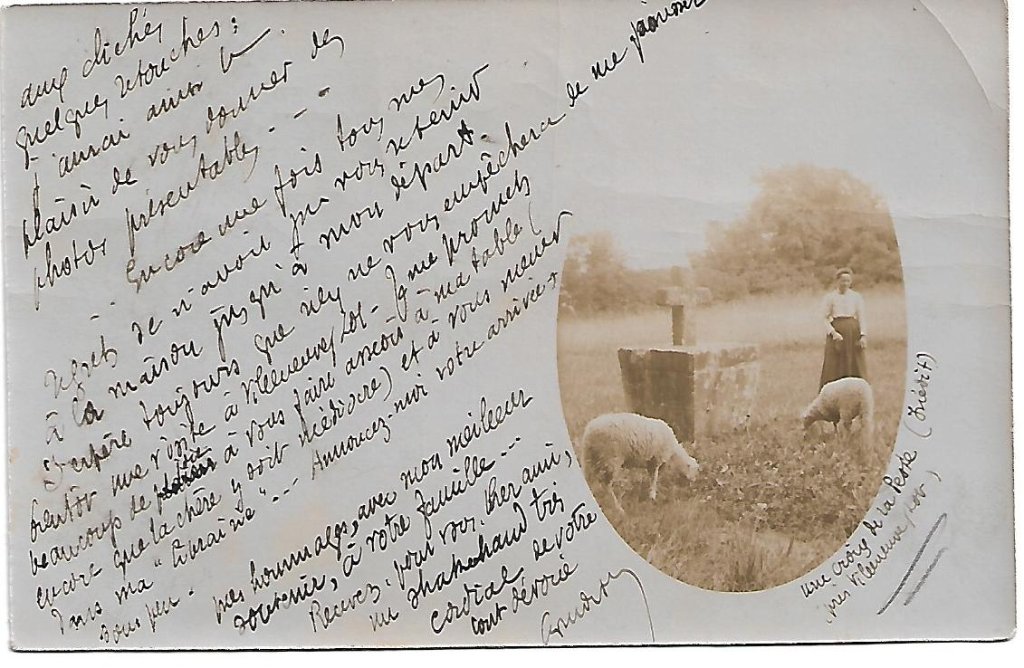 aux clichés
quelques retouches :
J'aurai ainsi le
plaisir de vous donner des
photos présentables - - -
Encore une fois tous mes
regrets de n'avoir pu vous retenir
à la maison jusqu'à mon départ.
J'espère toujours que rien ne vous empêchera de me
bientôt une visite à Villeneuve s/ - Je me promets
beaucoup de à vous faire asseoir à ma table (
encore que la chère y soit médiocre) et à vous mener
dans ma " " - - Annoncez-moi votre arrivée
sous peu -
mes hommages, avec mon meilleur
souvenir, à votre famille - -
Recevez, pour vous, cher ami,
un shake hand très
cordial de votre
tout dévoué
une croix de la Peste (Inédit)
(près Villeneuve )